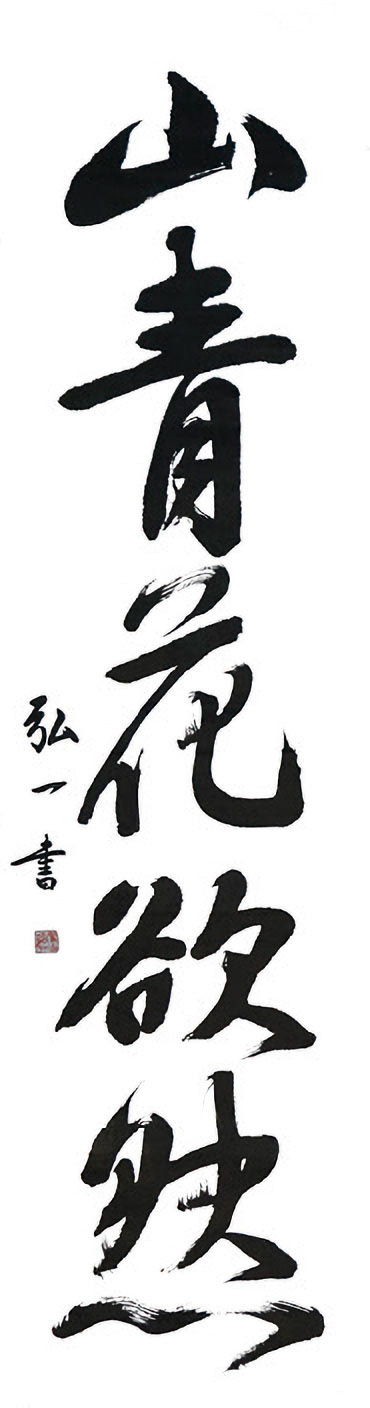 山青花欲然
弘一書